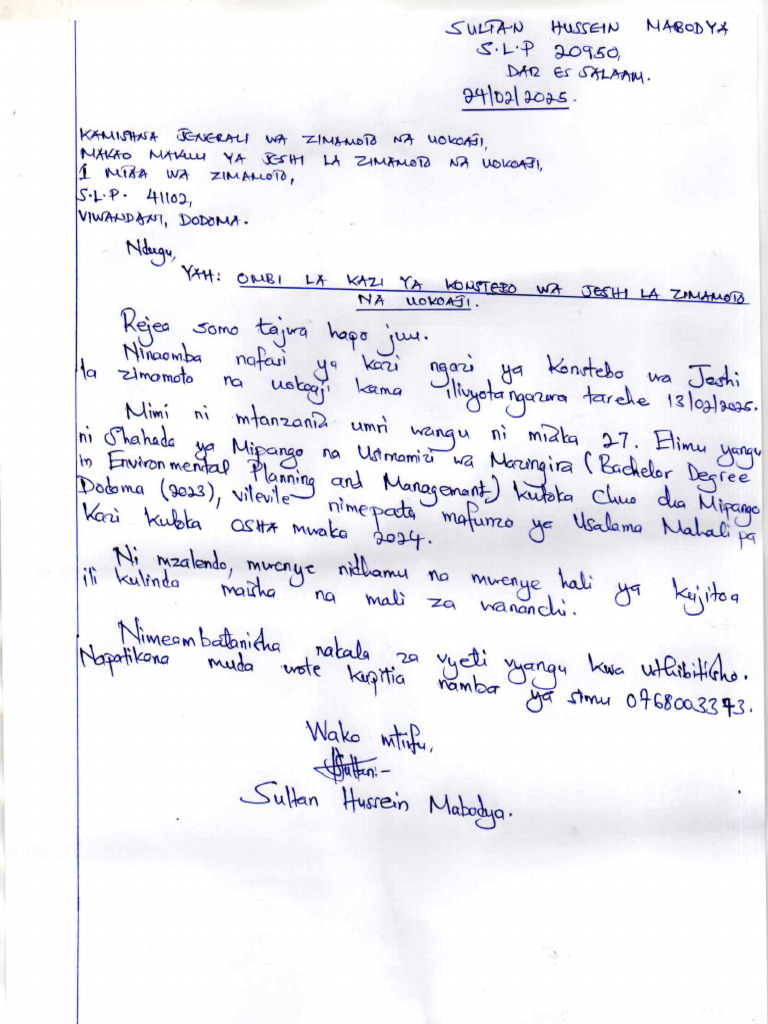 SULTAN HUSSEIN MABODYA
S.L.P 20950,
DAR ES SALAAM.
24/02/2025.
KAMISHNA JENERALI WA ZIMAMOTO NA UOKOAJI,
MAKAO MAKUU YA JESHI LA ZIMAMOTO NA UOKOAJI,
1 MTAA WA ZIMAMOTO,
S.L.P. 41102,
VIWANDANI, DODOMA.
Ndugu,
YAH: OMBI LA KAZI YA KONSTEBO WA JESHI LA ZIMAMOTO
NA UOKOAJI.
Rejea somo tajwa hapo juu.
Ninaomba nafasi ya kazi ngazi ya Konstebo wa Jeshi
la zimamoto na uokoaji kama ilivyotangazwa tarehe 13/02/2025.
Mimi ni mtanzania umri wangu ni miaka 27. Elimu yangu
ni Shahada ya Mipango na Usimamizi wa Mazingira (Bachelor Degree
in Environmental Planning and Management) kutoka Chuo cha Mipango
Dodoma (2023), vilevile nimepata mafunzo ya Usalama Mahali pa
Kazi kutoka OSHA mwaka 2024.
Ni mzalendo, mwenye nidhamu na mwenye hali ya kujitoa
ili kulinda maisha na mali za wananchi.
Nimeambatanisha nakala za vyeti vyangu kwa uthibitisho.
Napatikana muda wote kupitia namba ya simu 0768003373.
Wako mtiifu,
Sultan:-
Sultan Hussein Mabodya.